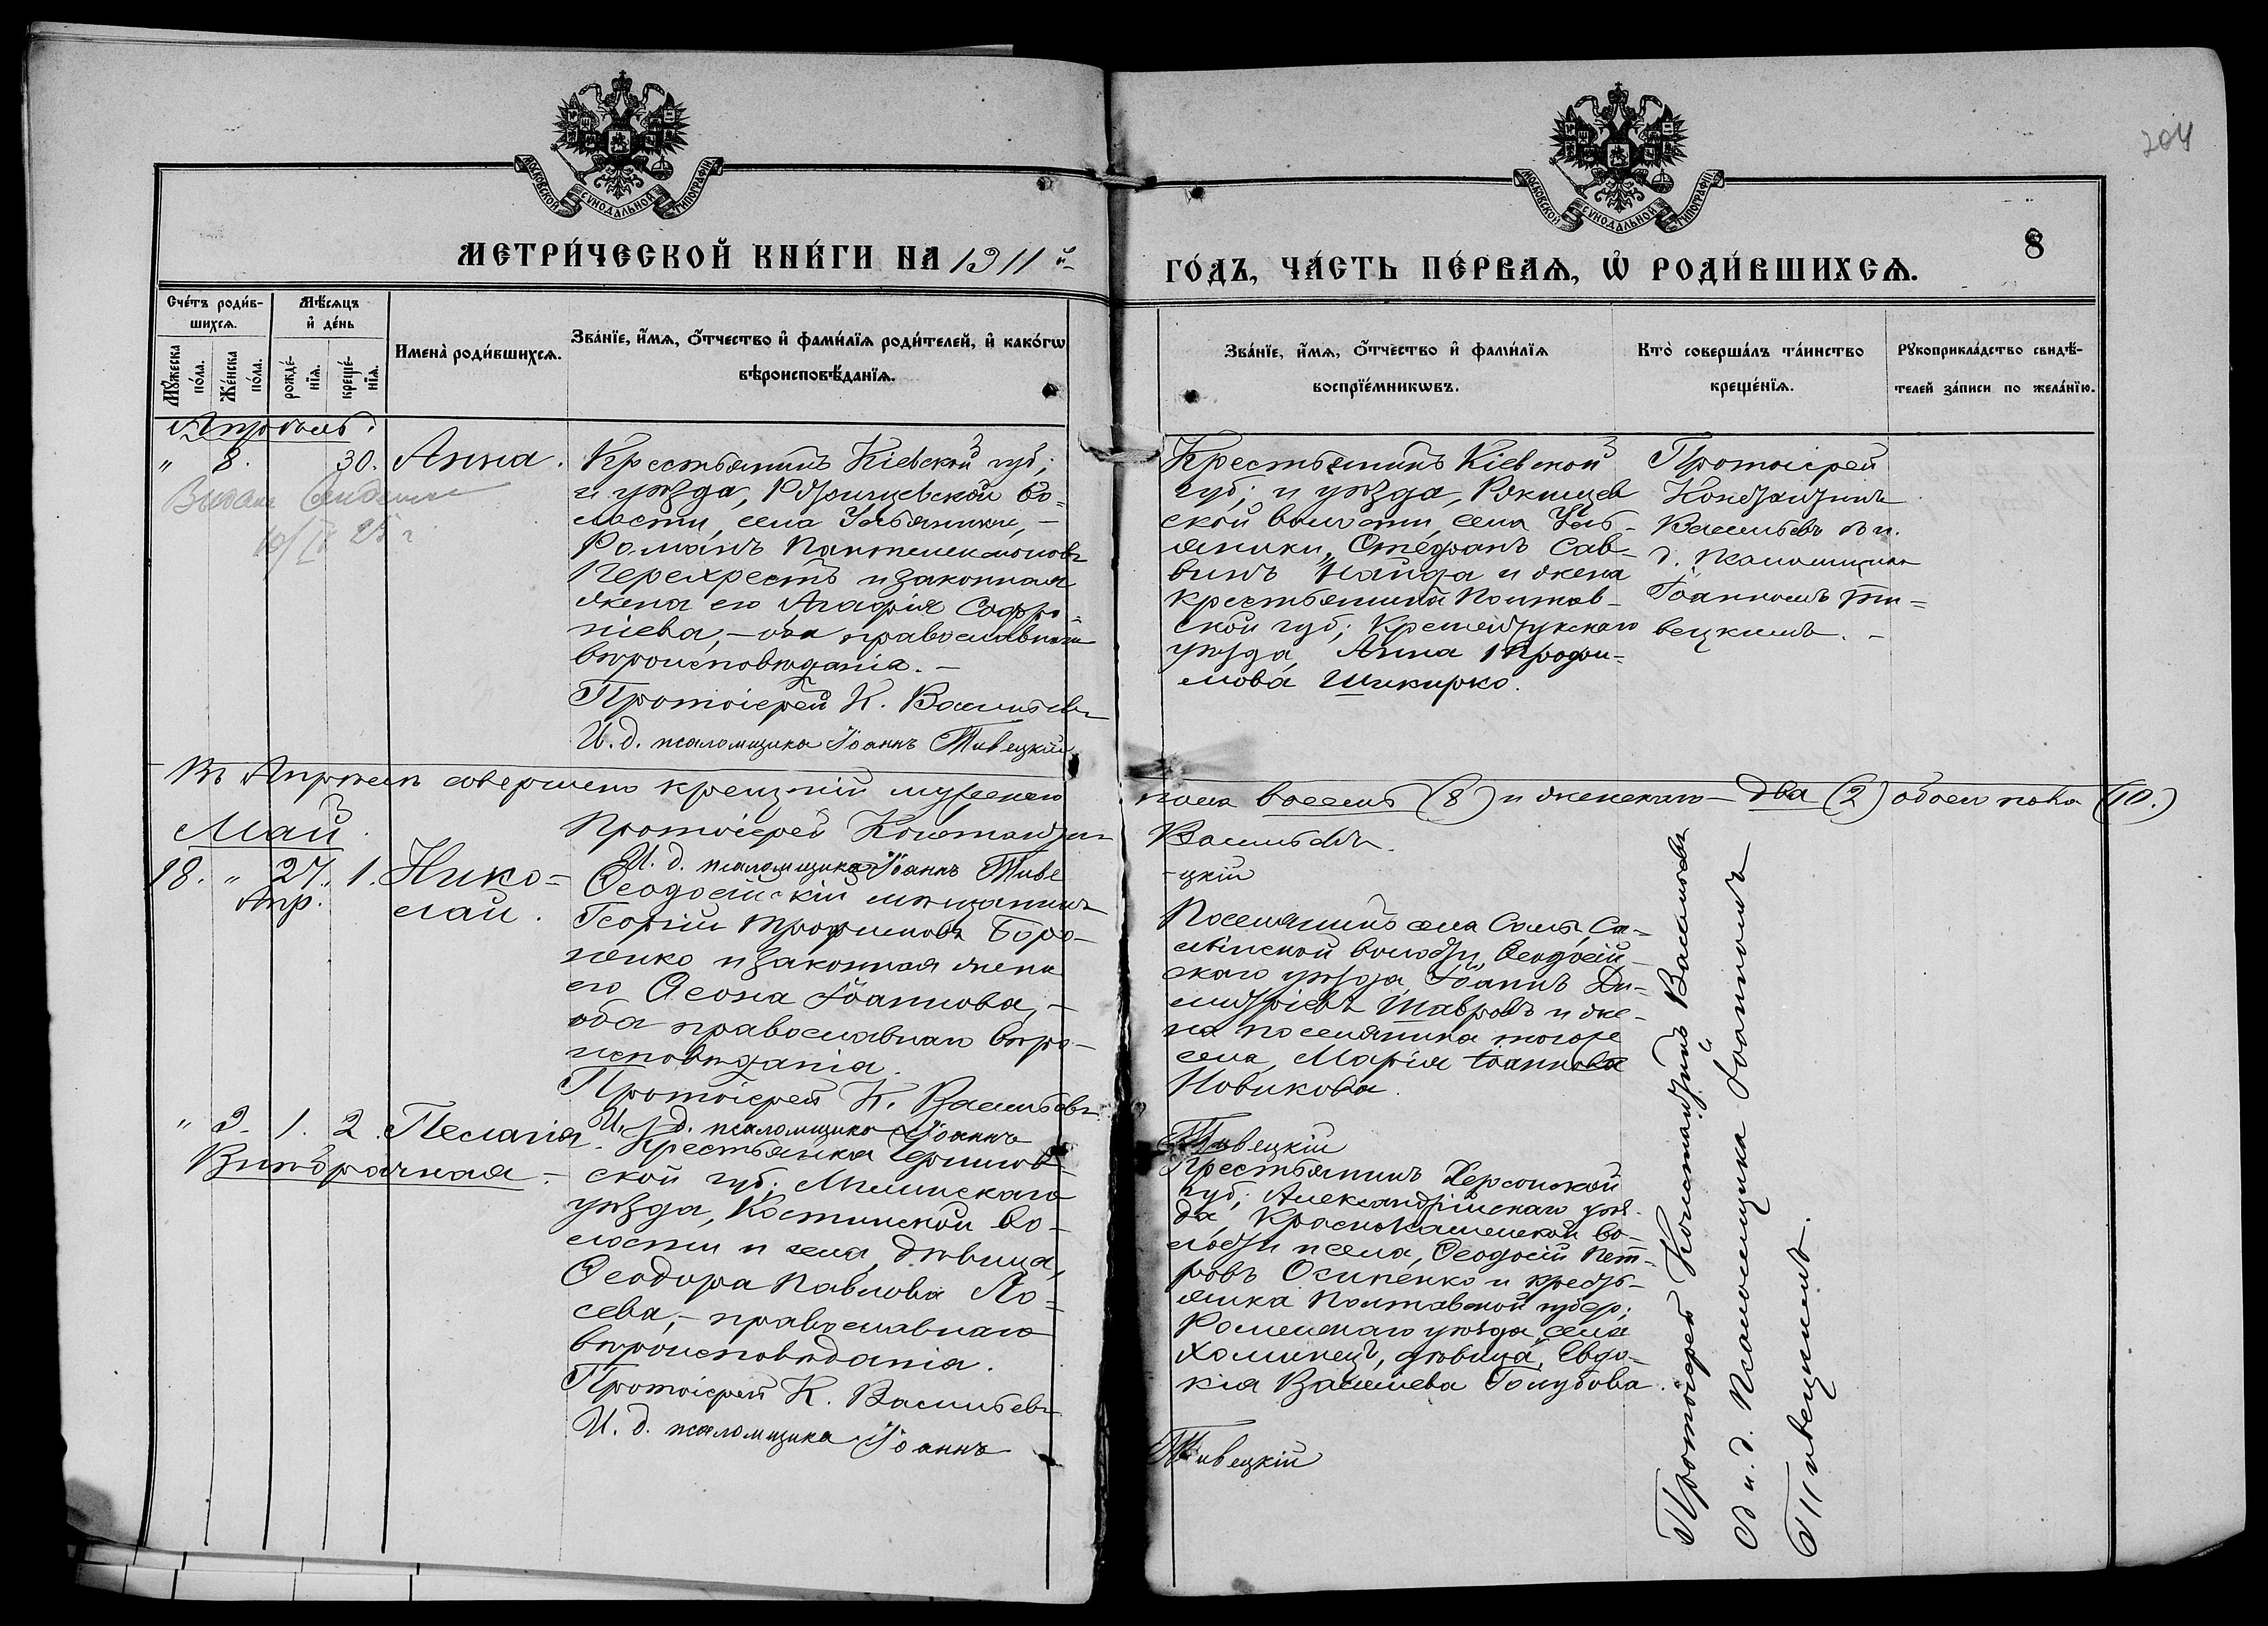 204
МОСКОВСКОЙ СѴНОДАЛЬНОЙ ТИПОГРАФІИ
МОСКОВСКОЙ СѴНОДАЛЬНОЙ ТИПОГРАФІИ
МЕТРИ́ЧЕСКОЙ КНИ́ГИ НА 1911 й
ГО́ДЪ, ЧА́СТЬ ПЕ́РВАѦ, Ѡ҆ РОДИ́ВШИХСѦ.
8
Сче́тъ роди́в-
шихсѧ.
Мꙋ́жеска
по́ла.
Же́нска
по́ла.
Мѣ́сѧцъ
и҆ де́нь
рожде́-
нїѧ.
креще́-
нїѧ.
Имена̀ роди́вшихсѧ.
Зва́нїе, и҆́мѧ, ѻ҆́тчество и҆ фами́лїѧ роди́телей, и҆ како́гѡ
вѣроисповѣ́данїѧ.
Зва́нїе, и҆́мѧ, ѻ҆́тчество и҆ фами́лїѧ
воспрїе́мникѡвъ.
Кто̀ соверша́лъ та́инство
креще́нїѧ.
Рꙋкоприкла́дство свидѣ́-
телей за́писи по жела́нїю.
Апрѣль.
" 8. 30. Анна.
25 г
Крестьянинъ Кіевской губ;
и уѣзда, во-
лости, села
Романъ Пантелеимоновъ
Перехрестъ и законная
жена его Агафія Софро-
ніева, – оба православнаго
вѣроисповѣданія. –
Протоіерей К. Васильевъ
И. д. псаломщика Іоаннъ Тивецкій
Крестьянинъ Кіевской
губ; и уѣзда,
ской волости, села
Стефанъ Сав-
винъ Найда и жена
крестьянина Полтав-
ской губ; Кременчукскаго
уѣзда, Анна Трофи-
мова Шикирко.
Протоіерей
Константинъ
Васильевъ и.
д. псаломщика
Іоанномъ Ти-
вецкимъ. –
Въ Апрѣлѣ совершено крещеній мужескаго
пола восемь (8) и женскаго – два (2) обоего пола (10.)
Протоіерей Константинъ
Васильевъ.
И. д. псаломщика Іоаннъ Тиве
-цкій
Май.
18. " 27. 1. Нико-
Апр. лай.
Ѳеодосійскій мѣщанинъ
Георгій Трофимовъ Боро-
ненко и законная жена
его Ѳеона Іоаннова, –
оба православнаго вѣро-
исповѣданія.
Протоіерей К. Васильевъ
И. д. псаломщика Іоаннъ
Поселянинъ села Салы, Са-
лынской волости, Ѳеодосій-
скаго уѣзда, Іоаннъ Ди-
митріевъ Шавровъ и же-
на поселянина того же
села, Марія Іоаннова
Новикова.
Тивецкій
" 3. 1. 2. Пелагія
Внѣбрачная. –
Крестьянка Чернигов-
ской губ; Мглинскаго
уѣзда, Костинской во-
лости и села, дѣвица,
Ѳеодора Павлова Ло-
сева, – православнаго
вѣроисповѣданія.
Протоіерей К. Васильевъ
И. д. псаломщика Іоаннъ
Крестьянинъ Херсонской
губ; Александрійскаго уѣз-
да, Краснокаменской во-
лости и села, Ѳеодосій Пет-
ровъ Осипенко и кресть-
янка Полтавской губер;
Роменскаго уѣзда, села
Хоминецъ, дѣвица, Евдо-
кія Васильева Голубова.
Тивецкій
Протоіерей Константинъ Васильевъ
и. д. псаломщика Іоанномъ
Тивецкимъ.